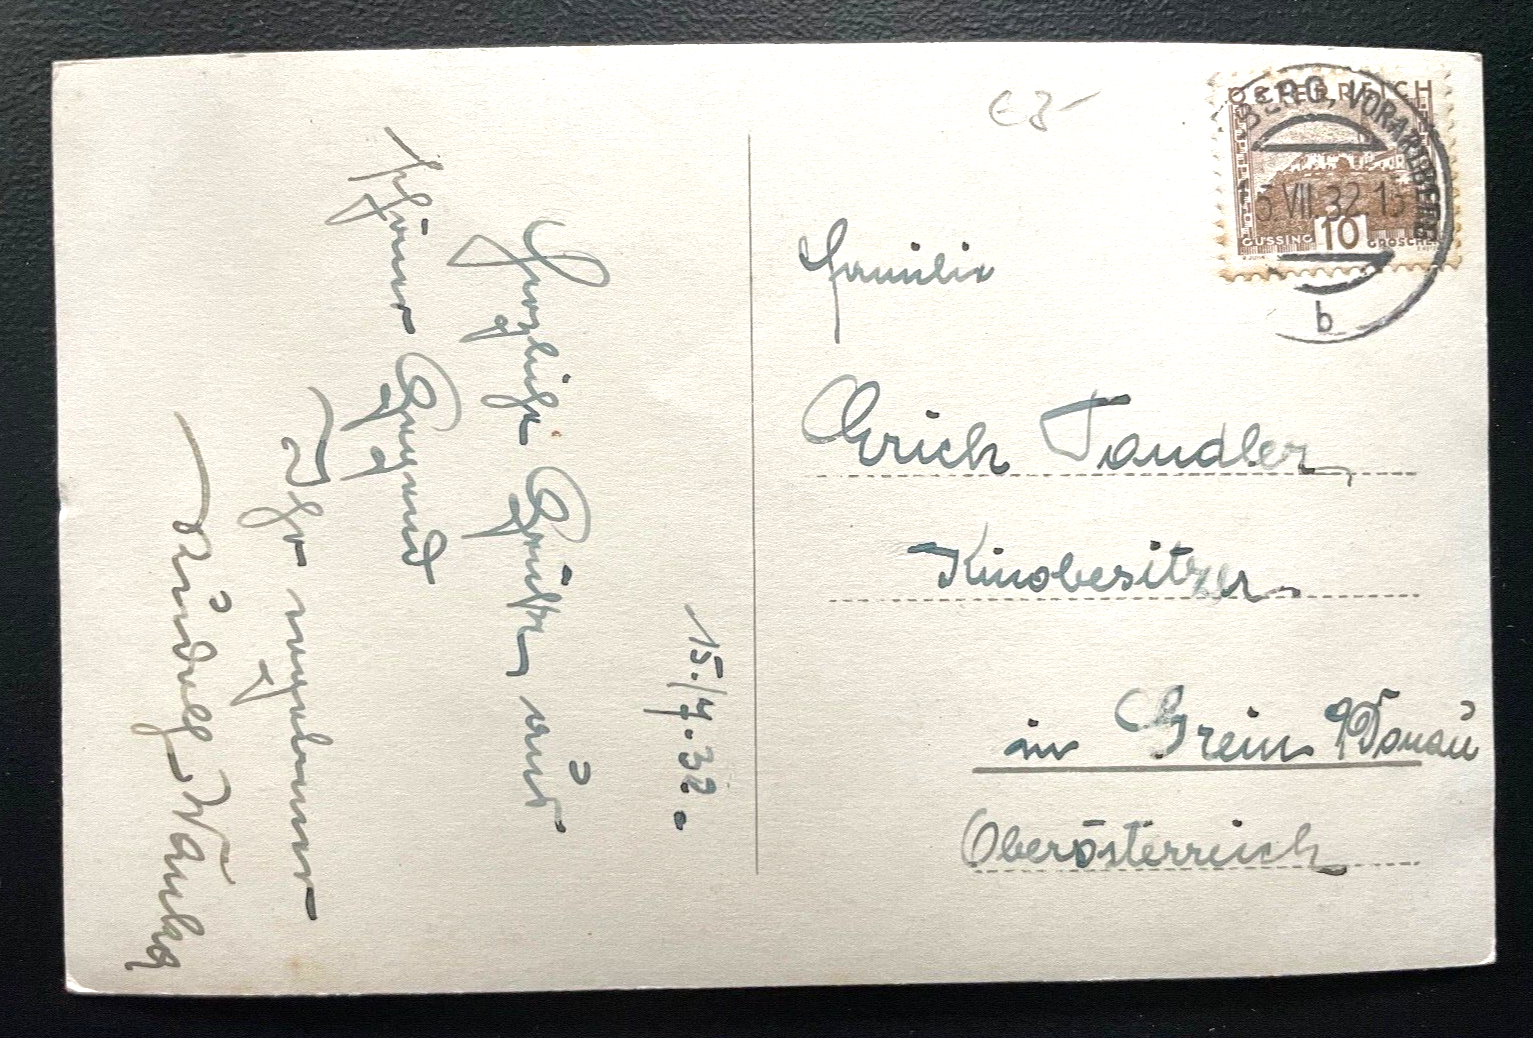 15./7.32.
Herzliche Grüße, aus
schöner Gegend
Ihr ergebener
€ 3-
ÖSTERREICH
GÜSSING 10 GROSCHEN
BERG, VORARLBERG
VII 32 13
b
Familie
Erich Tandler,
Kinobesitzer
in Grein a/Donau
Oberösterreich